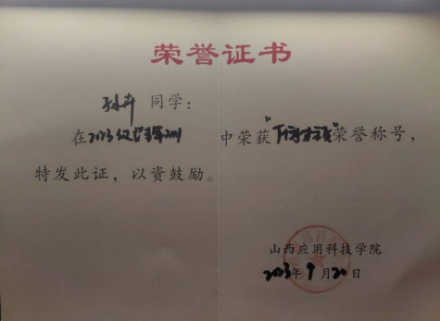 荣誉证书
同学：
在2023级军训中荣获"
荣誉称号，
特发此证，以资鼓励。
山西应用科技学院
2023年9月20日